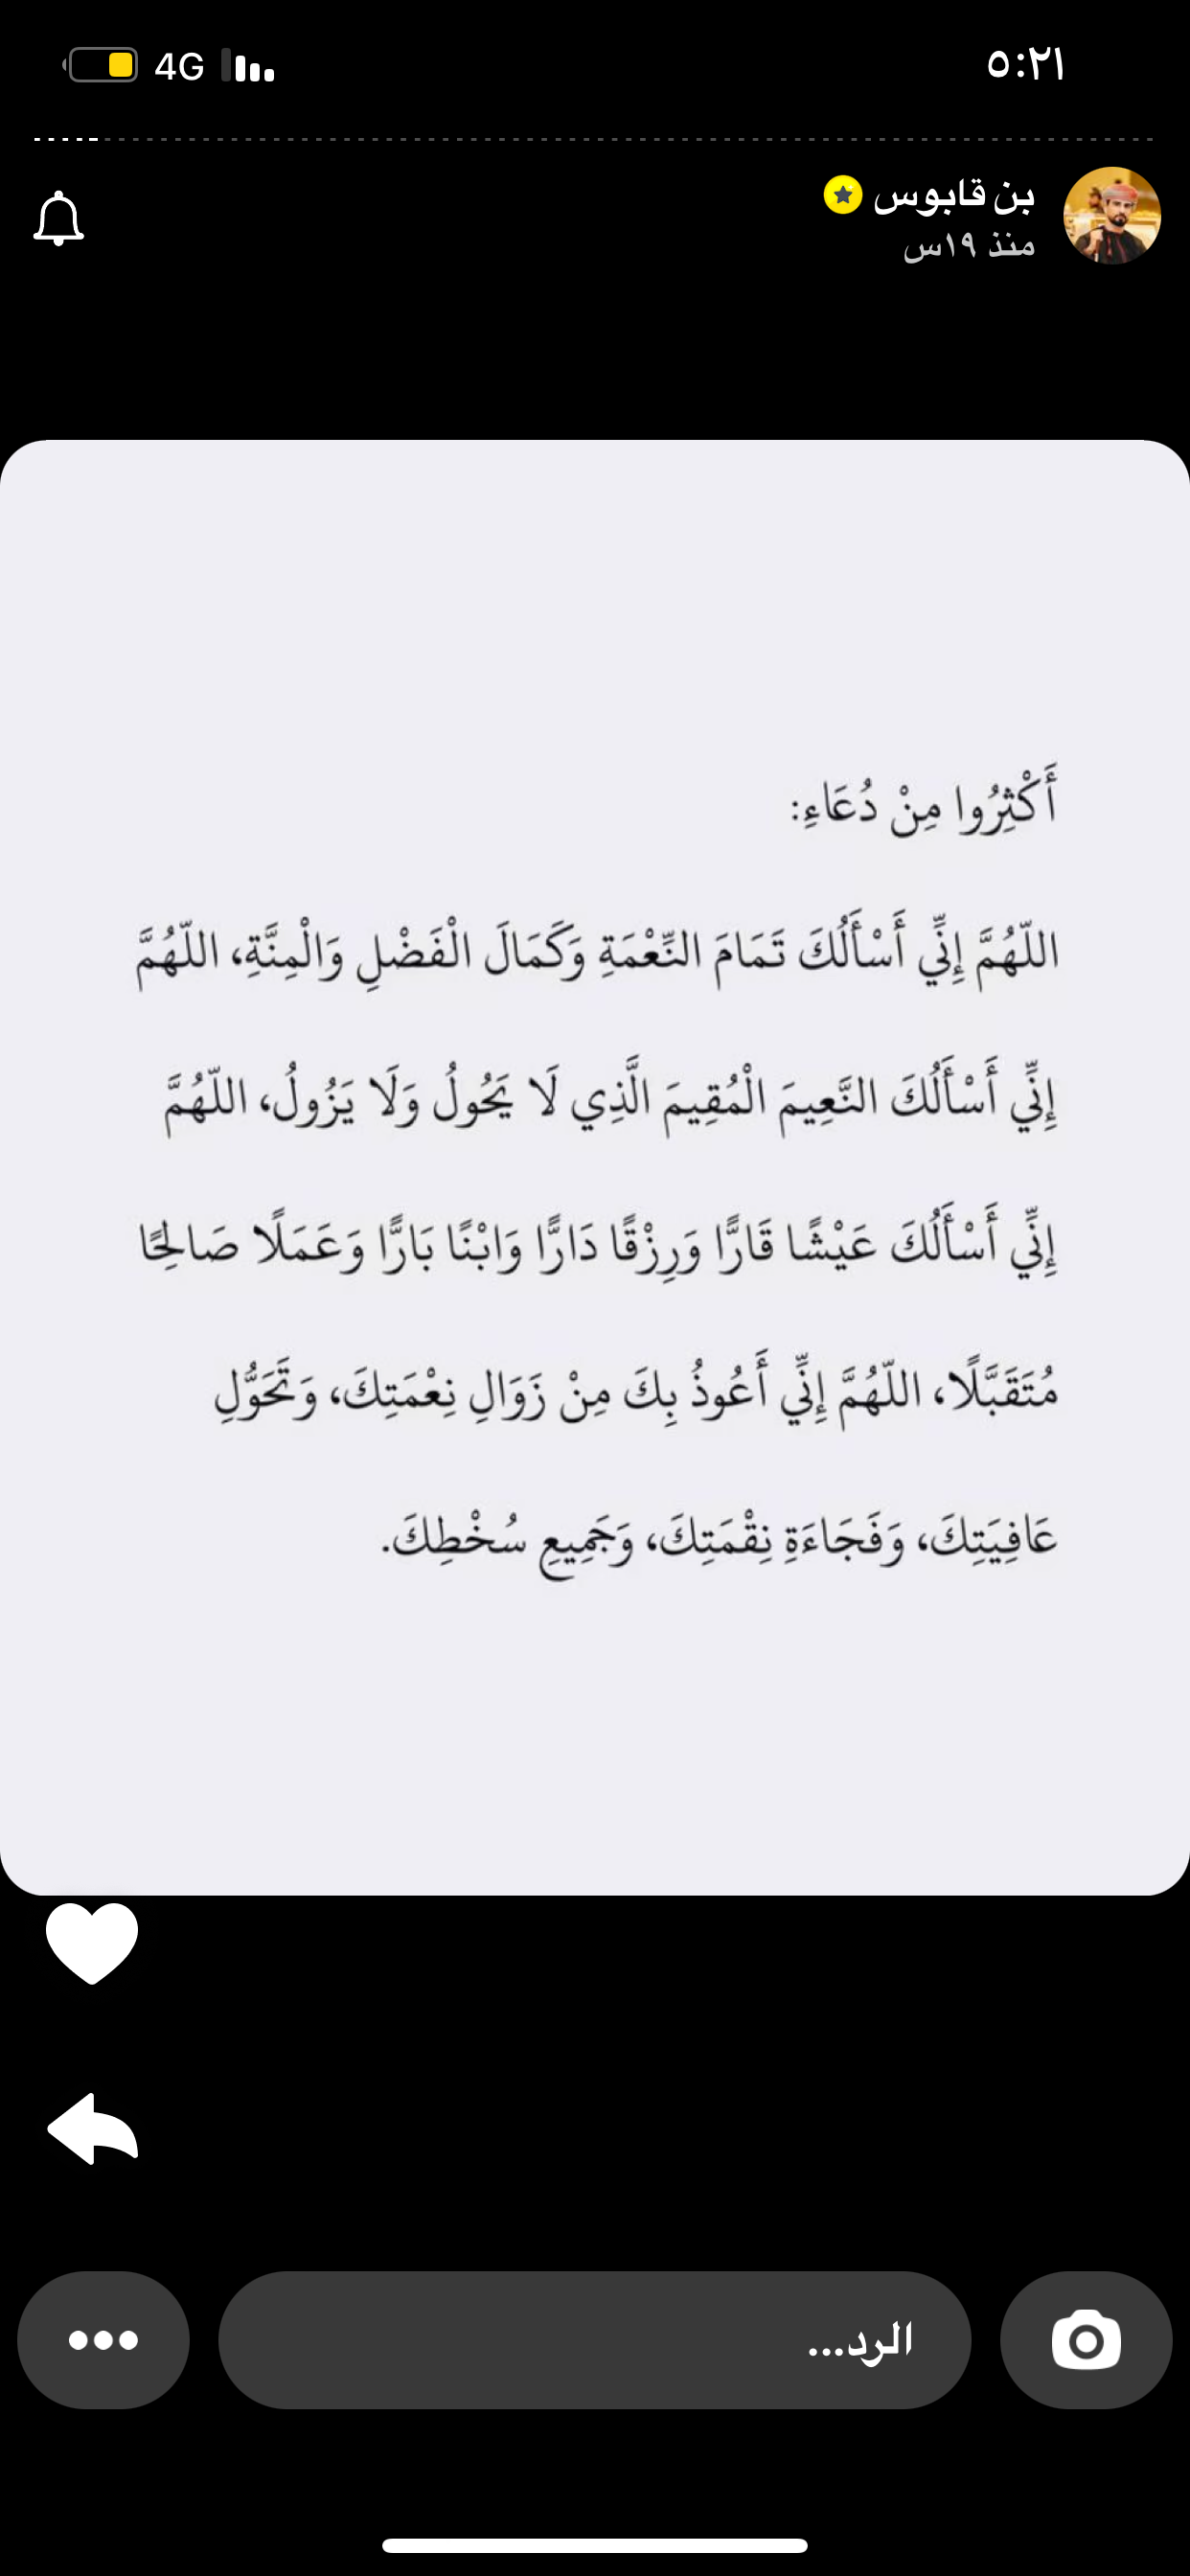 ٥:٢١
4G
بن قابوس
منذ ١٩س
أَكْثِرُوا مِنْ دُعَاءِ:
اللّهُمَّ إِنِّي أَسْأَلُكَ تَمَامَ النِّعْمَةِ وَكَمَالَ الْفَضْلِ وَالْمِنَّةِ، اللّهُمَّ
إِنِّي أَسْأَلُكَ النَّعِيمَ الْمُقِيمَ الَّذِي لَا يَحُولُ وَلَا يَزُولُ، اللّهُمَّ
إِنِّي أَسْأَلُكَ عَيْشًا قَارًّا وَرِزْقًا دَارًّا وَابْنًا بَارًّا وَعَمَلًا صَالِحًا
مُتَقَبَّلًا، اللّهُمَّ إِنِّي أَعُوذُ بِكَ مِنْ زَوَالِ نِعْمَتِكَ، وَتَحَوُّلِ
عَافِيَتِكَ، وَفَجَاءَةِ نِقْمَتِكَ، وَجَمِيعِ سُخْطِكَ.
الرد...